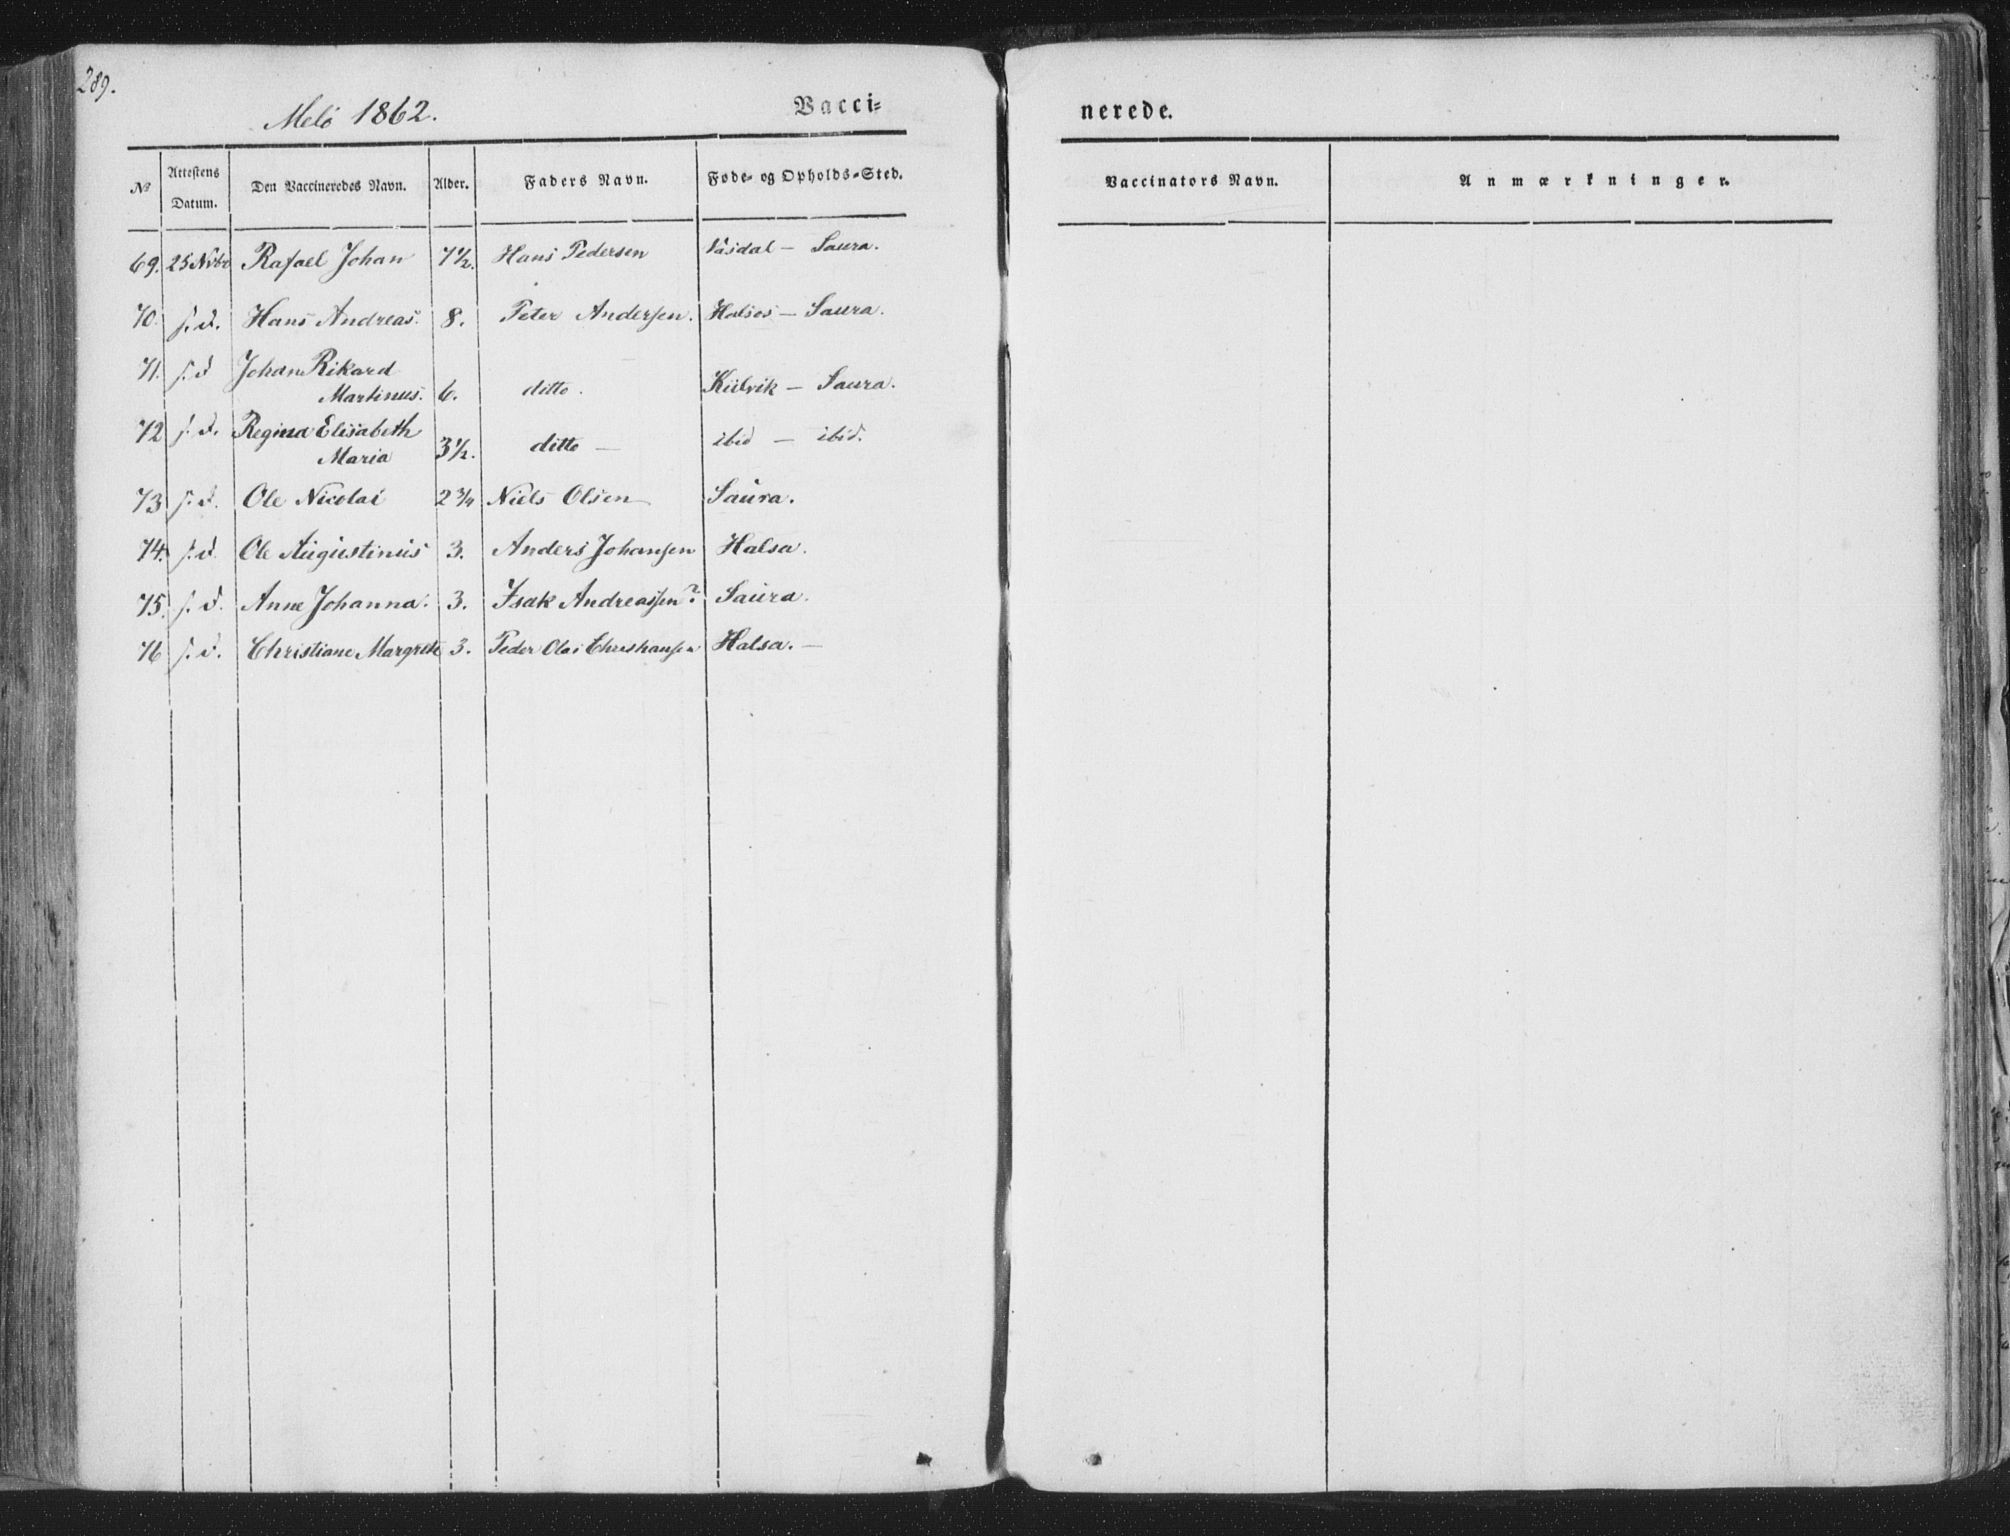 289.
Melö 1862.
Vacci=
nerede.
No Attestens Datum. Den Vaccineredes Navn. Alder. Faders Navn. Føde- og Opholds-Sted.
Vaccinators Navn. Anmærkninger.
69. 25 Nvbr Rafael Johan 7½. Hans Pedersen Vasdal — Saura.
70. s. d. Hans Andreas. 8. Peter Andersen. Halsos — Saura.
71. s. d Johan Rikard
Martinus. 6. ditto. Kulvik — Saura.
72 s. d. Regina Elisabeth
Maria 3½. ditto — ibid — ibid.
73 s. d. Ole Nicolai 2¾ Niels Olsen Saura.
74. s. d. Ole Augustinus 3. Anders Johansen Halsa.
75. s. d. Anne Johanna. 3. Isak Andreassen? Saura.
76 s. d. Christiane Margrete 3. Peder Olai Christiansen Halsa. —